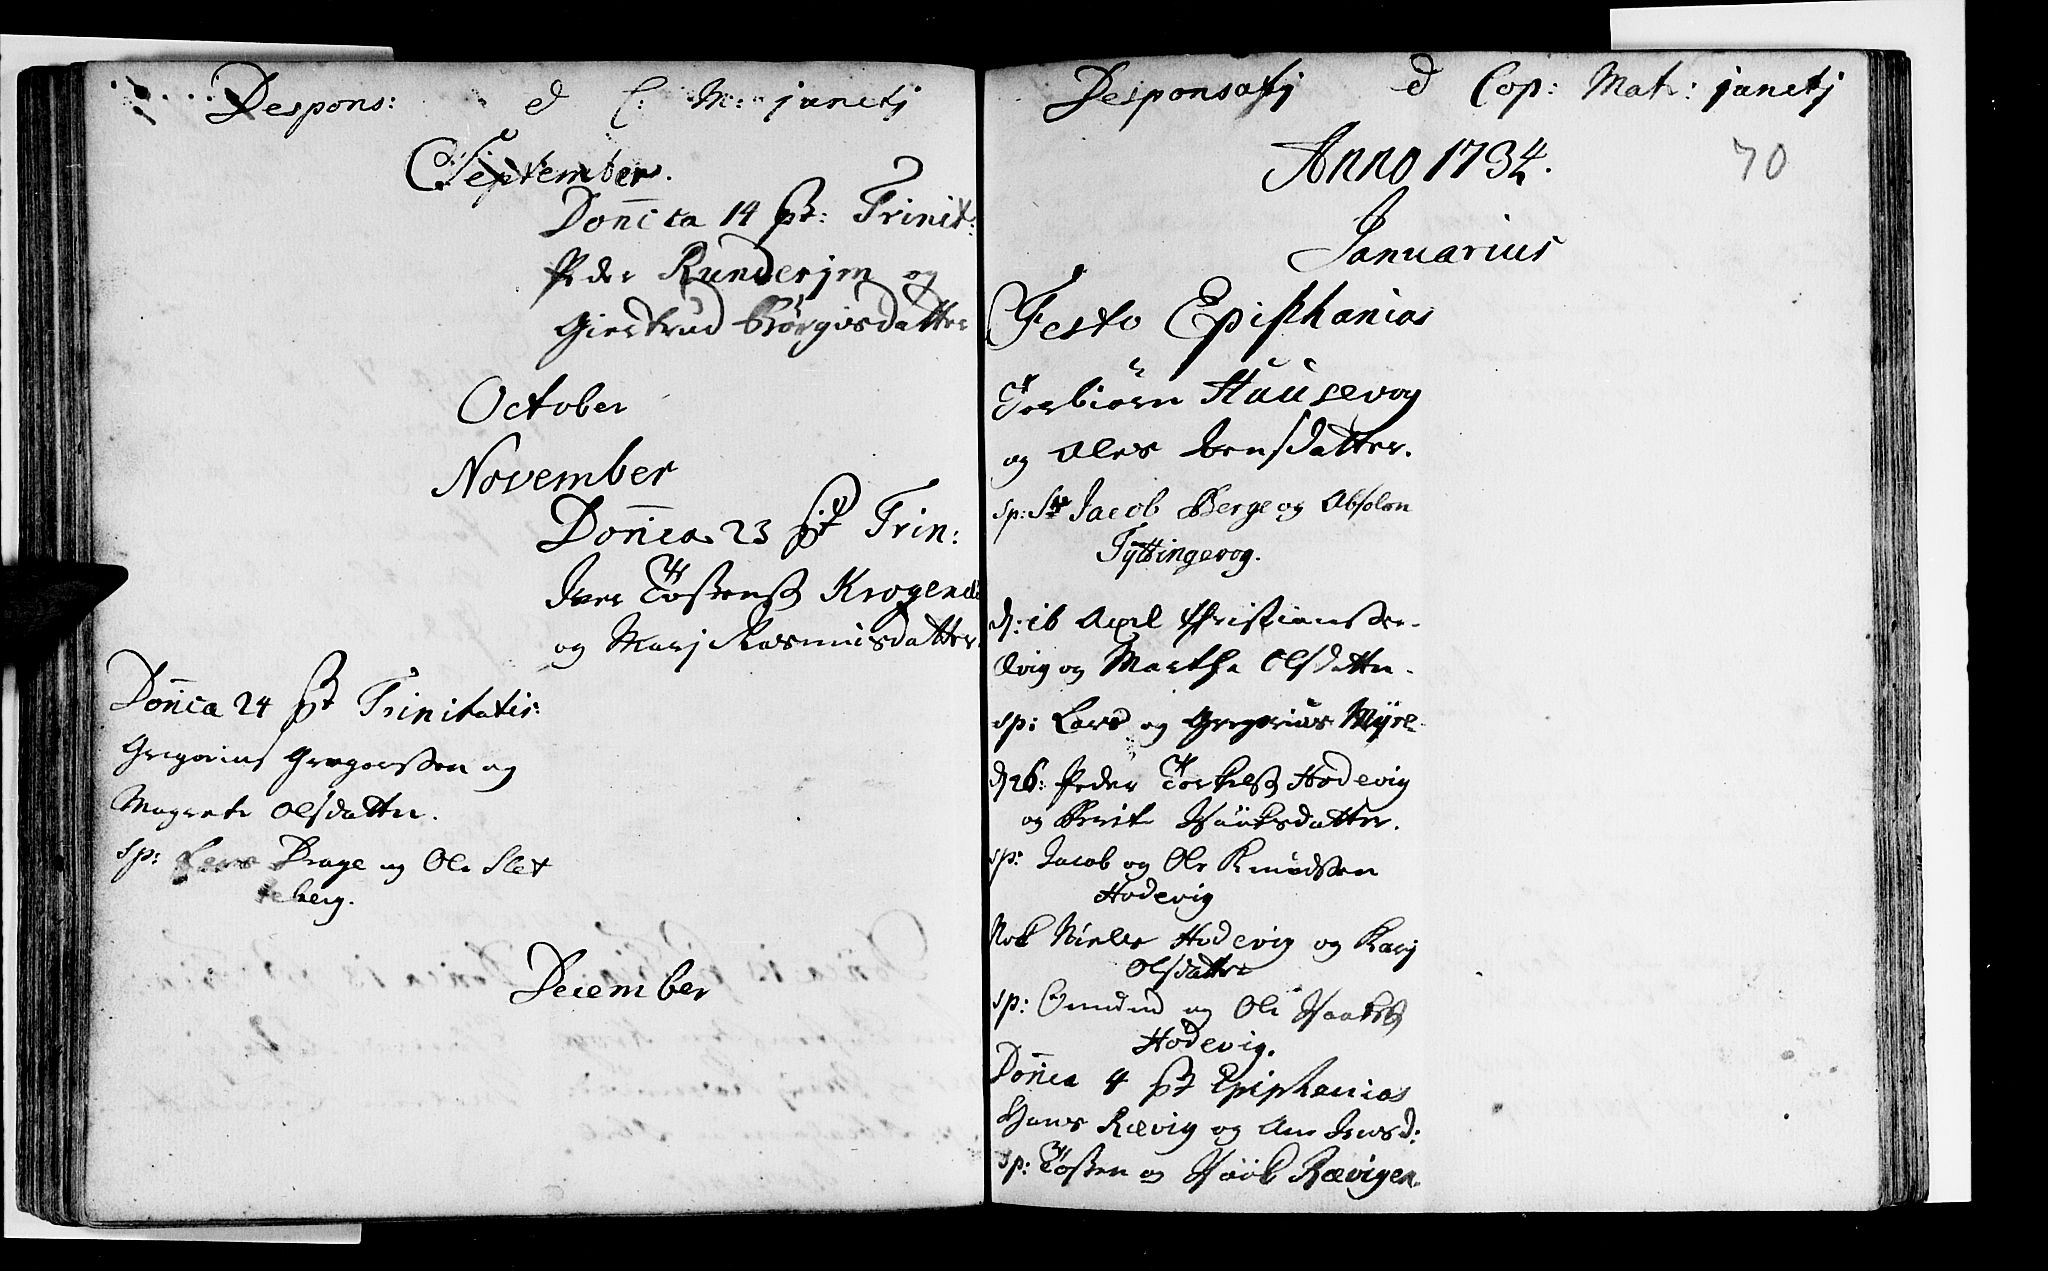 Despons: et C: M: junctj
September.
Dom̄ica 14 pt: Trinit:
Peder Runderjm og
Giertrud Børgisdatter
October
November
Dom̄ica 23 pt Trin:
Iver Tostensß Krogen
og Marj Rasmusdatter.
Dom̄ica 24 pt Trinitatis:
Grigorius Gregersßen og
Magrete Olsdatter.
sp: Lars Drage og Ole Slet
teberg.
December
Desponsatj et Cop: Matr: junctj
Anno 1734.
70
Januarius
Festo Epiphanias
Torbiørn Haüsevog
og Ales Jensdatter.
sp: Sr Jacob Berge og Absolon
Tÿttingevog.
d: 16 Axel Christiansß
og Marthe Olsdatter.
sp: Lars og Gregorius Mÿre
d 26: Peder Torkelsß Hodevig
og Berite Haaksdatter.
sp: Jacob og Ole Knudsßen
Hodevig
Nok Niels Hodevig og Karj
Olsdatter
sp: Omund og Ole Haaksß
Hodevig.
Dom̄ica 4 pt Epiphanias
Hans Rævig og Ane Iversd:
sp: Tosten og Haak Rævigen.